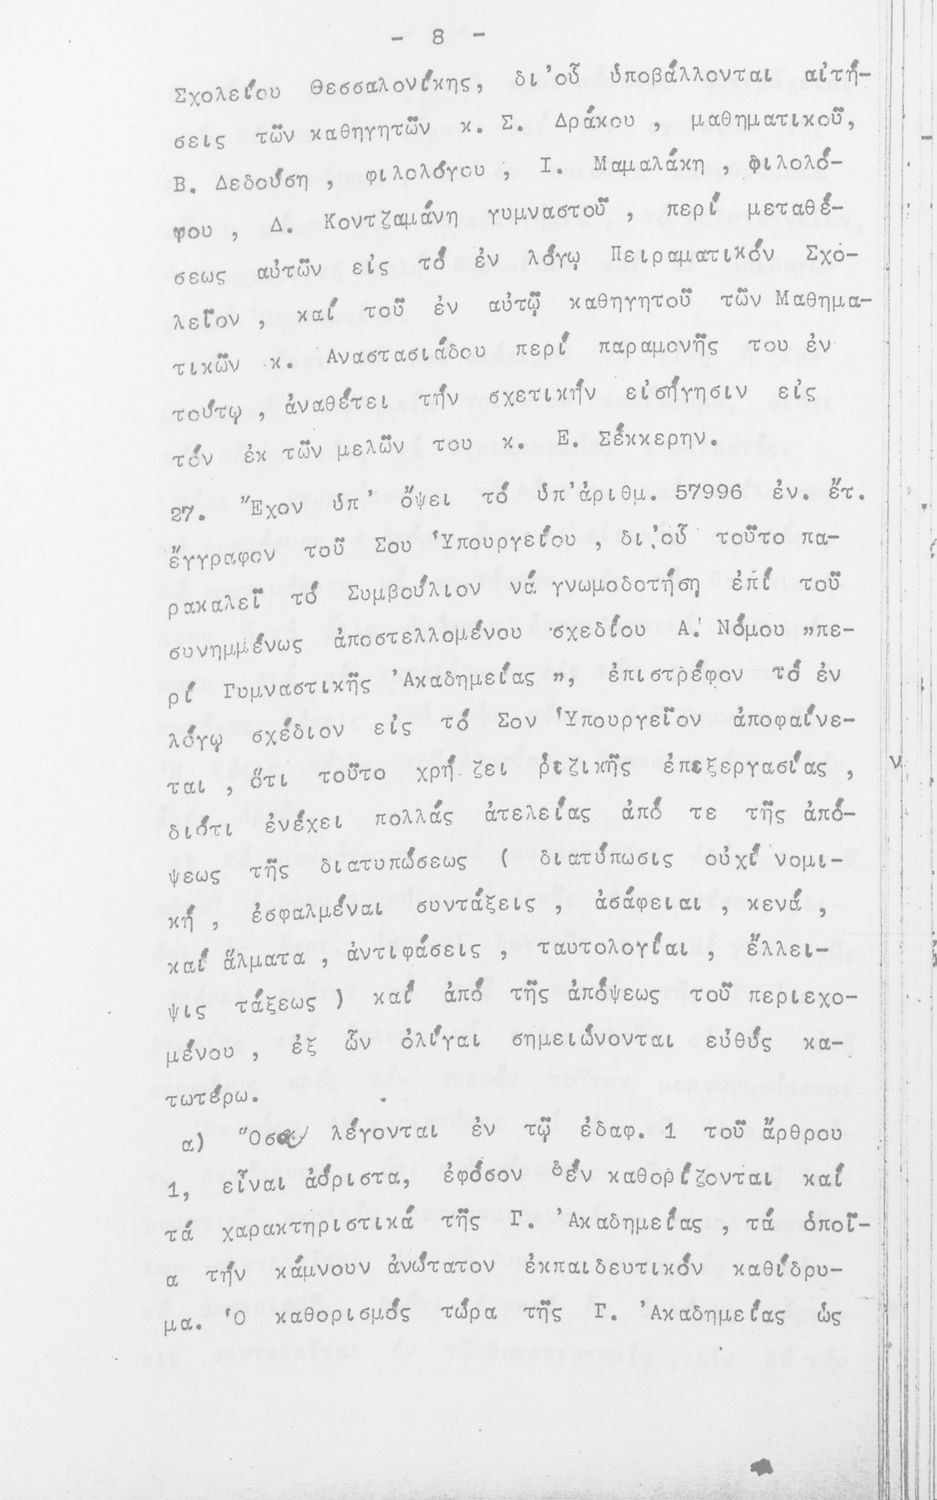 - 8 -
Σχολείου Θεσσαλονίκης, δι'οὗ ὑποβάλλονται αἰτή-
σεις τῶν καθηγητῶν κ. Σ. Δράκου , μαθηματικοῦ,
Β. Δεδούση , φιλολόγου , Ι. Μαμαλάκη , φιλολό-
γου , Δ. Κοντζαμάνη γυμναστοῦ , περί μεταθέ-
σεως αὐτῶν εἰς τό ἐν λόγῳ Πειραματικόν Σχο-
λεῖον , καί τοῦ ἐν αὐτῷ καθηγητοῦ τῶν Μαθημα-
τικῶν κ. Αναστασιάδου περί παραμονῆς του ἐν
τούτῳ , ἀναθέτει τήν σχετικήν εἰσήγησιν εἰς
τόν ἐκ τῶν μελῶν του κ. Ε. Σέκκερην.
27. Ἔχον ὑπ' ὄψει τό ὑπ'ἀριθμ. 57996 ἐν. ἔτ.
ἔγγραφον τοῦ Σου Ὑπουργείου , δι'οὗ τοῦτο πα-
ρακαλεῖ τό Συμβούλιον νά γνωμοδοτήση ἐπί τοῦ
συνημμένως ἀποστελλομένου σχεδίου Α.' Νόμου "πε-
ρί Γυμναστικῆς Ἀκαδημείας ", ἐπιστρέφον τό ἐν
λόγῳ σχέδιον εἰς τό Σον Ὑπουργεῖον ἀποφαίνε-
ται , ὅτι τοῦτο χρήζει ῥιζικῆς ἐπεξεργασίας , ν
διότι ἐνέχει πολλάς ἀτελείας ἀπό τε τῆς ἀπό-
ψεως τῆς διατυπώσεως ( διατύπωσις οὐχί νομι-
κή , ἐσφαλμέναι συντάξεις , ἀσάφειαι , κενά ,
καί ἅλματα , ἀντιφάσεις , ταυτολογίαι , ἔλλει-
ψις τάξεως ) καί ἀπό τῆς ἀπόψεως τοῦ περιεχο-
μένου , ἐξ ὧν ὀλίγαι σημειώνονται εὐθύς κα-
τωτέρω.
α) Ὅσα λέγονται ἐν τῷ ἐδαφ. 1 τοῦ ἄρθρου
1, εἶναι ἀόριστα, ἐφόσον δέν καθορίζονται καί
τά χαρακτηριστικά τῆς Γ. Ἀκαδημείας , τά ὁποῖ-
α τήν κάμνουν ἀνώτατον ἐκπαιδευτικόν καθίδρυ-
μα. Ὁ καθορισμός τώρα τῆς Γ. Ἀκαδημείας ὡς